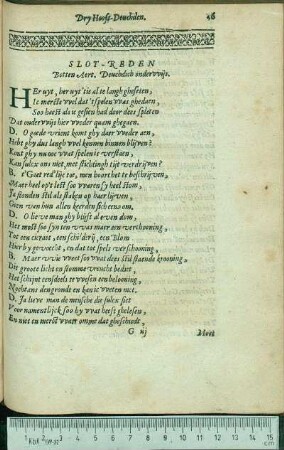 Dry Hooft-Deuchden. 46
SLOT-REDEN
Botten Aert. Deuchdich onderwijs.
HEr uyt, her uyt 'tis al te langh gheseten,
Ic merckt wel dat 't spelen was ghedaen,
Soo heeft als u gesien had door dees spleten
Dat onderwijs hier weder quam ghegaen.
D. O goede vrient komt ghy daer weder aen,
Hebt ghy dus langh wel konnen binnen blijven?
Kont ghy nu ooc wat spelen is verstaen,
Kan sulcx ons niet met stichtingh tijt verdrijven?
B. 't Gaet redlijc toe, men hoort het te beschrijven,
Maer heel op't lest soo waren sy heel stom,
Ja stonden stil als staken op haer lijven,
Gien wou hun alles keerden schier om,
D. O lieve man ghy blijft al even dom,
Het most soo zyn ten was maer een verthooning,
Tot een cieraet, een schildrij, een Blom
Hier by gevoecht, en dat tot spels verschooning,
B. Maer wie weet soo wat dees stil staende krooning,
Dit groote licht en stomme vreucht bediet,
Het schijnt eensdeels te wesen een belooning,
Nochtans den grondt en kan ic weten niet.
D. Ja lieve man de mensche die sulcx siet
Voor namentlijck soo hy wat heeft ghelesen,
En niet en merckt waer omme dat gheschiedt,
G iij Moet